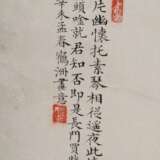 片幽懷托素琴相從遥夜此
頭唫就君知否即是長門買
辛未孟春鶴洲畫意